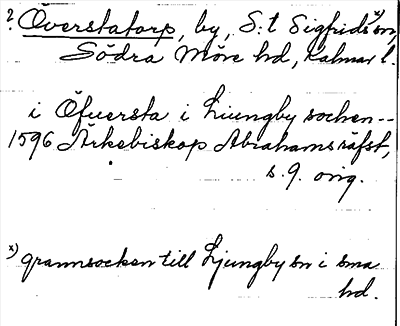 ? Överstatorp, by, S:t Sigfrids x) sn,
Södra Möre hd, Kalmar l.
i Öfuersta i Liungby sochen--
1596 Ärkebiskop Abrahams räfst,
s. 9. orig.
x) grannsocken till Ljungby sn i sma
hd.